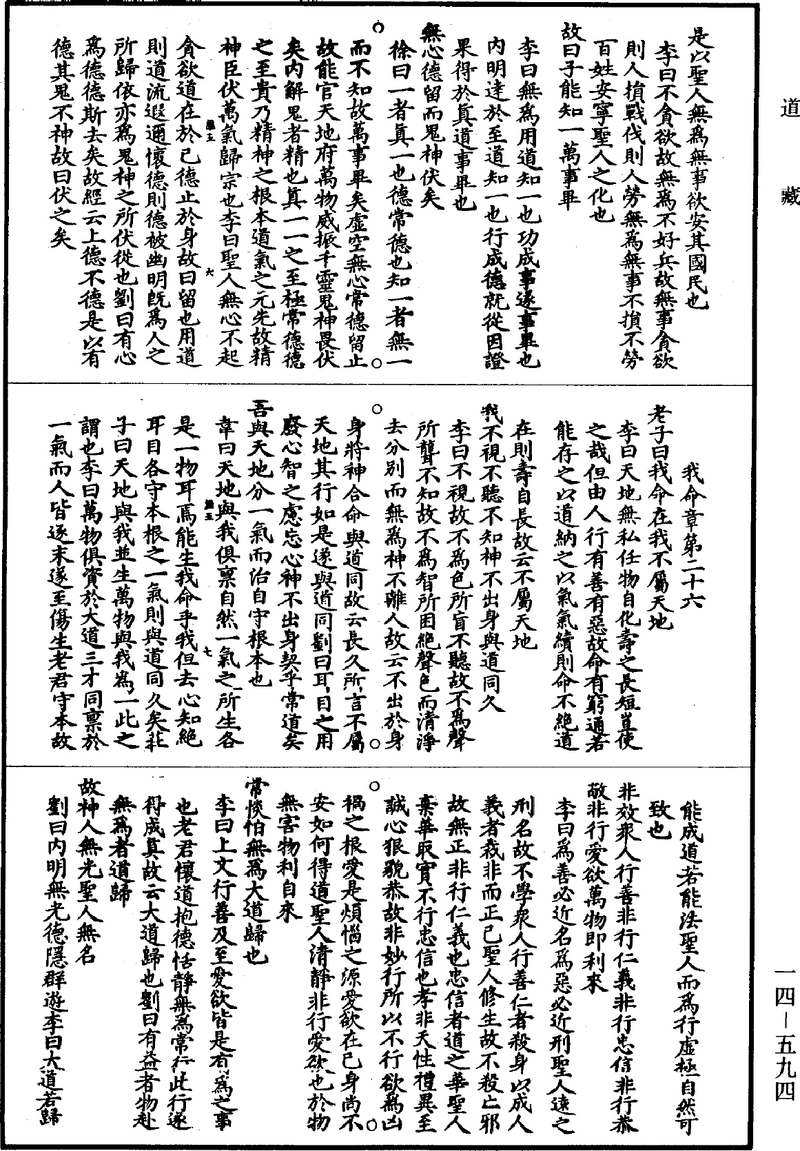 道藏
是以聖人無為無事欲安其國民也
李曰不貪欲故無為不好兵故無事貪欲
則人損戰伐則人勞無為無事不損不勞
百姓安寧聖人之化也
故曰子能知一萬事畢
李曰無為用道知一也功成事遂事畢也
內明達於至道知一也行成德就從因證
果得於真道事畢也
無心德留而鬼神伏矣
徐曰一者真一也德常德也知一者無一
而不知故萬事畢矣虛空無心常德留止
故能官天地府萬物威振千靈鬼神畏伏
矣內解鬼者精也真一一之至極常德德
之至貴乃精神之根本道氣之元先故精
神臣伏萬氣歸宗也李曰聖人無心不起
貪欲道在於己德止於身故曰留也用道
則道流遐邇懷德則德被幽明既為人之
所歸依亦為鬼神之所伏從也劉曰有心
為德德斯去矣故經云上德不德是以有
德其鬼不神故曰伏之矣
我命章第二十六
老子曰我命在我不屬天地
李曰天地無私任物自化壽之長短豈使
之哉但由人行有善有惡故命有窮通若
能存之以道納之以氣氣續則命不絕道
在則壽自長故云不屬天地
我不視不聽不知神不出身與道同久
李曰不視故不為色所盲不聽故不為聲
所聾不知故不為智所困絕聲色而清淨
去分別而無為神不離人故云不出於身
身將神合命與道同故云長久所言不屬
天地其行如是遂與道同劉曰耳目之用
廢心智之慮忘心神不出身契乎常道矣
吾與天地分一氣而治自守根本也
韋曰天地與我俱稟自然一氣之所生各
是一物耳焉能生我命乎我但去心知絕
耳目各守本根之一氣則與道同久矣莊
子曰天地與我並生萬物與我為一此之
謂也李曰萬物俱資於大道三才同稟於
一氣而人皆逐末遂至傷生老君守本故
能成道若能法聖人而為行虛極自然可
致也
非效眾人行善非行仁義非行忠信非行恭
敬非行愛欲萬物即利來
李曰為善必近名為惡必近刑聖人遠之
刑名故不學眾人行善仁者殺身以成人
義者裁非而正己聖人修生故不殺亡邪
故無正非行仁義也忠信者道之華聖人
棄華取實不行忠信也孝非天性禮異至
誠心狠貌恭故非妙行所以不行欲為凶
禍之根愛是煩惱之源愛欲在己身尚不
安如何得道聖人清靜非行愛欲也於物
無害物利自來
常惔怕無為大道歸也
李曰上文行善及至愛欲皆是有為之事
也老君懷道抱德恬靜無為常行此行遂
得成真故云大道歸也劉曰有益者物赴
無為者道歸
故神人無光聖人無名
劉曰內明無光德隱群遊李曰大道若歸
一四－五九四